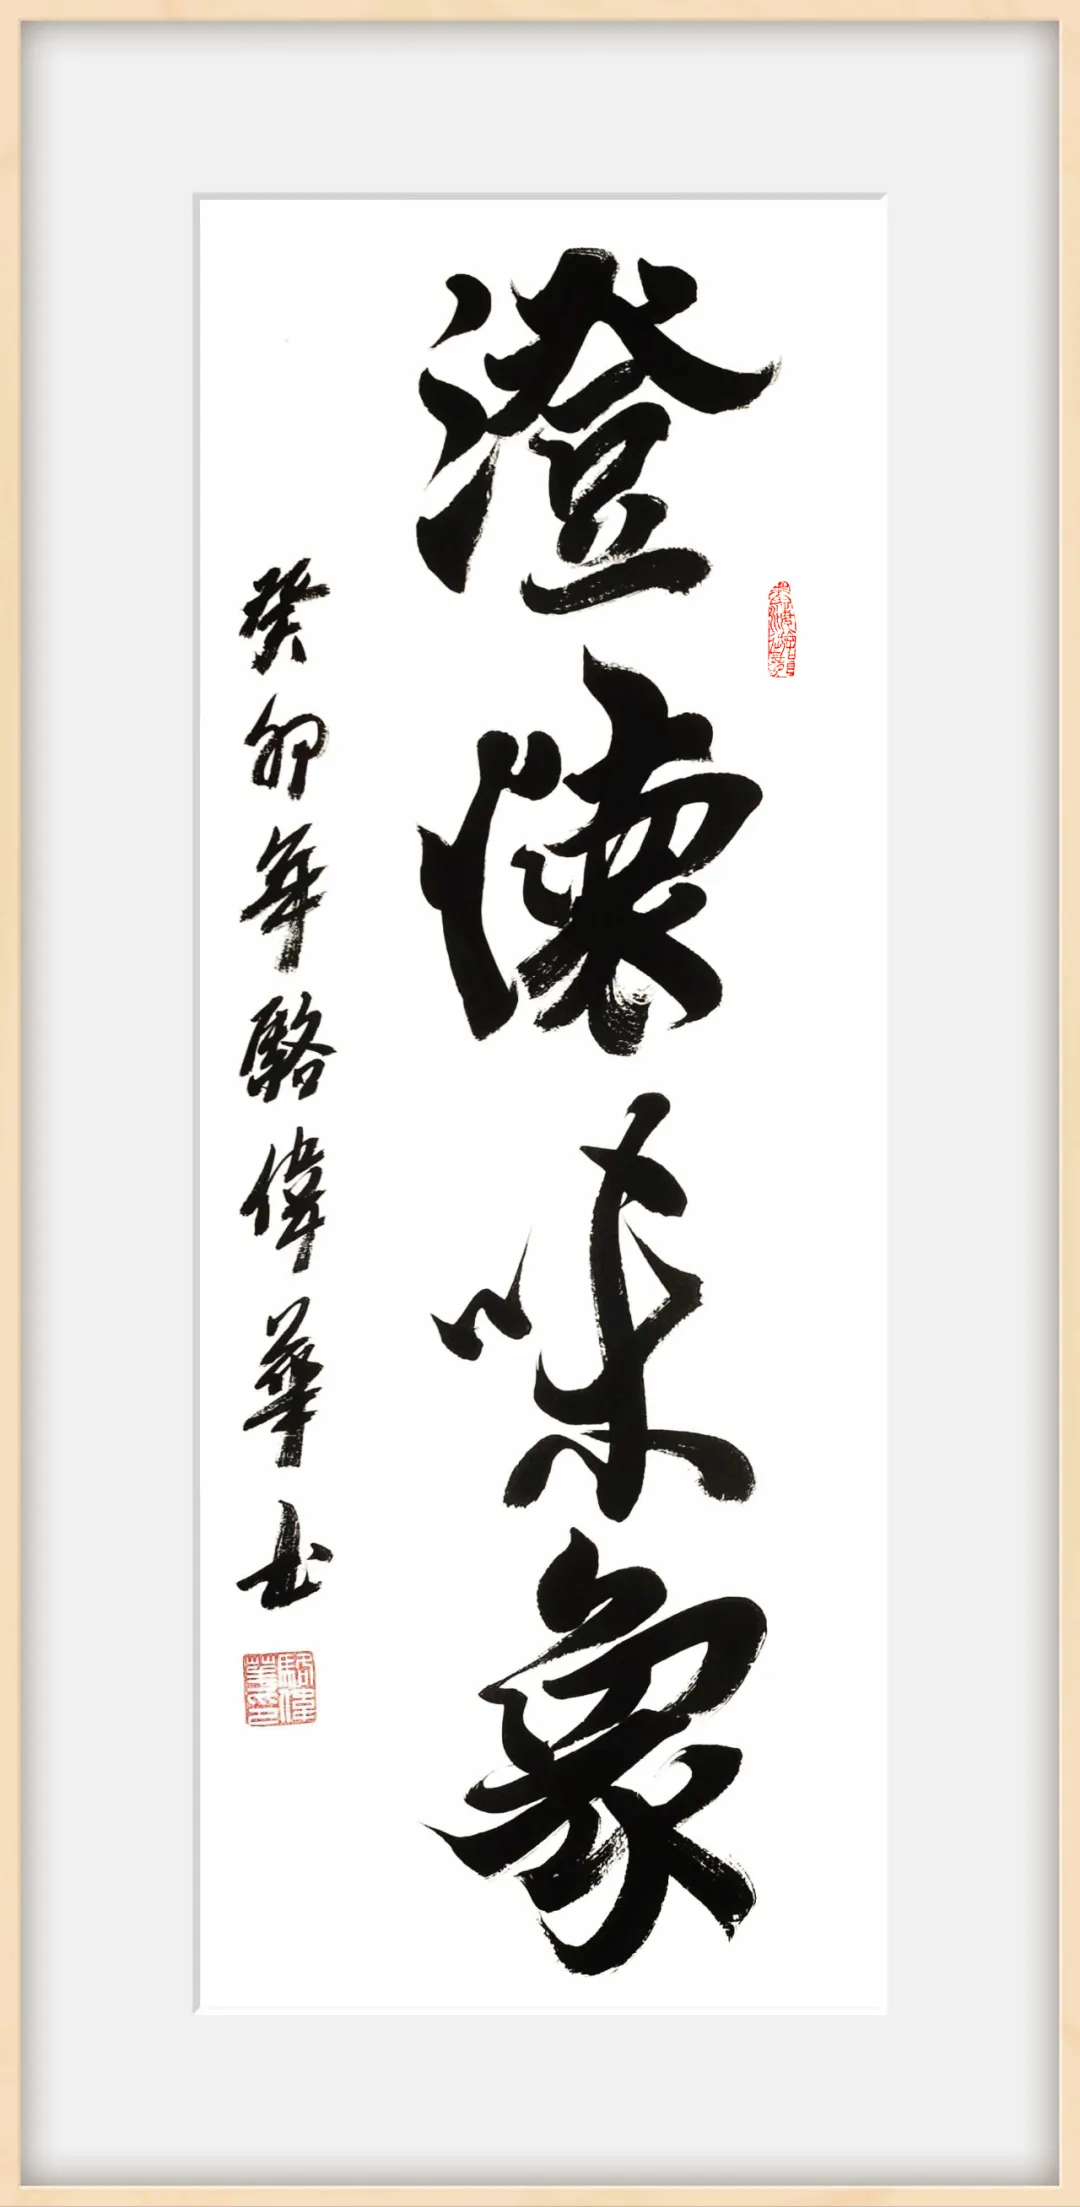 澄懷味象
癸卯年駱偉華書
駱偉華印